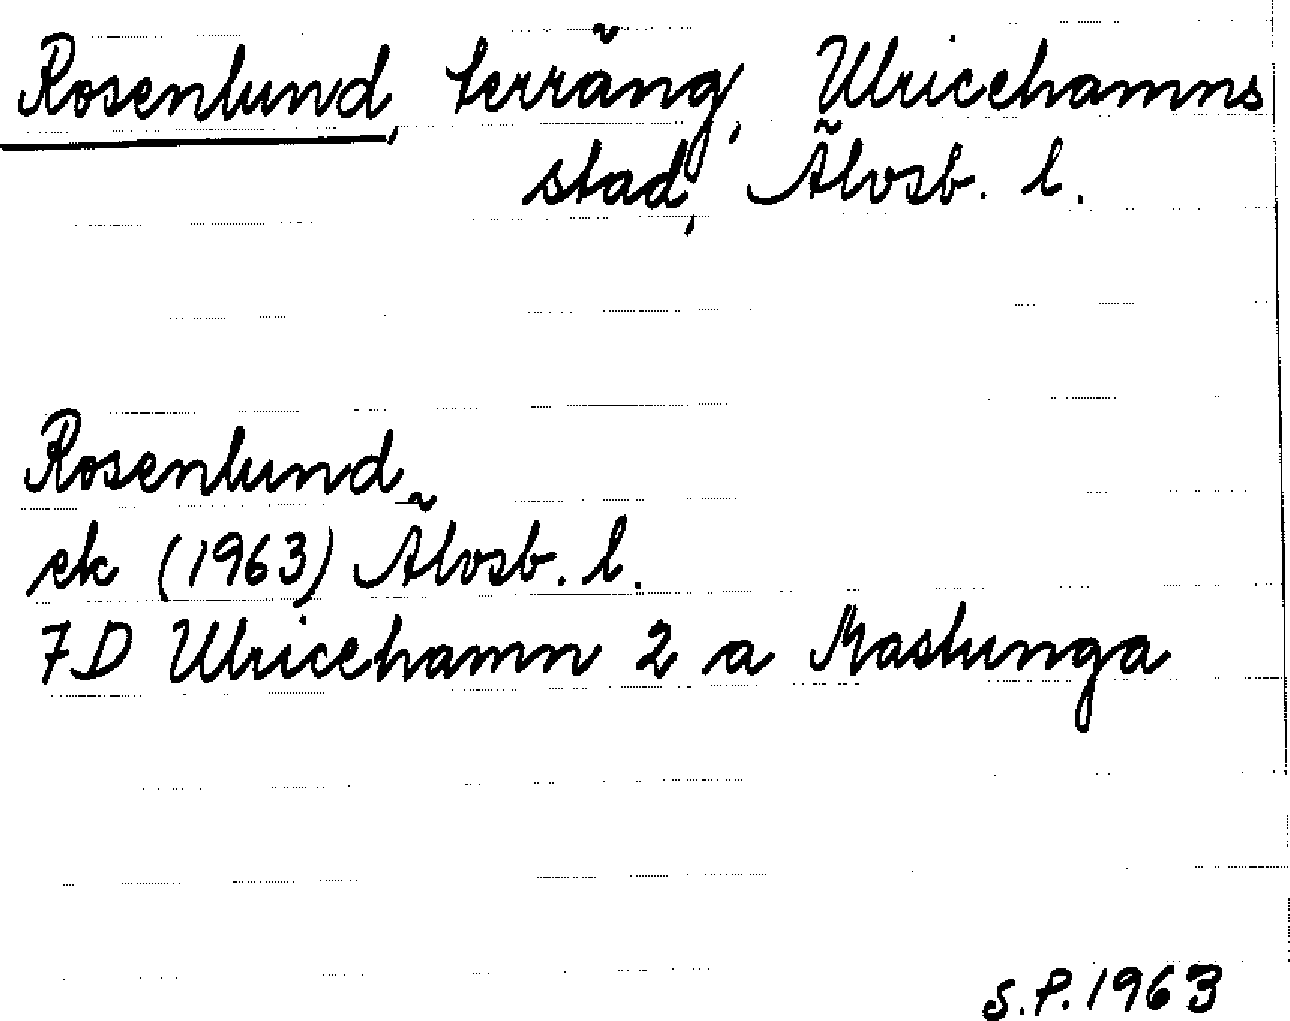 Rosenlund, terräng, Ulricehamns
stad, Älvsb. l.
Rosenlund
ek (1963) Älvsb. l.
7D Ulricehamn 2 a Maslunga
S.P. 1963